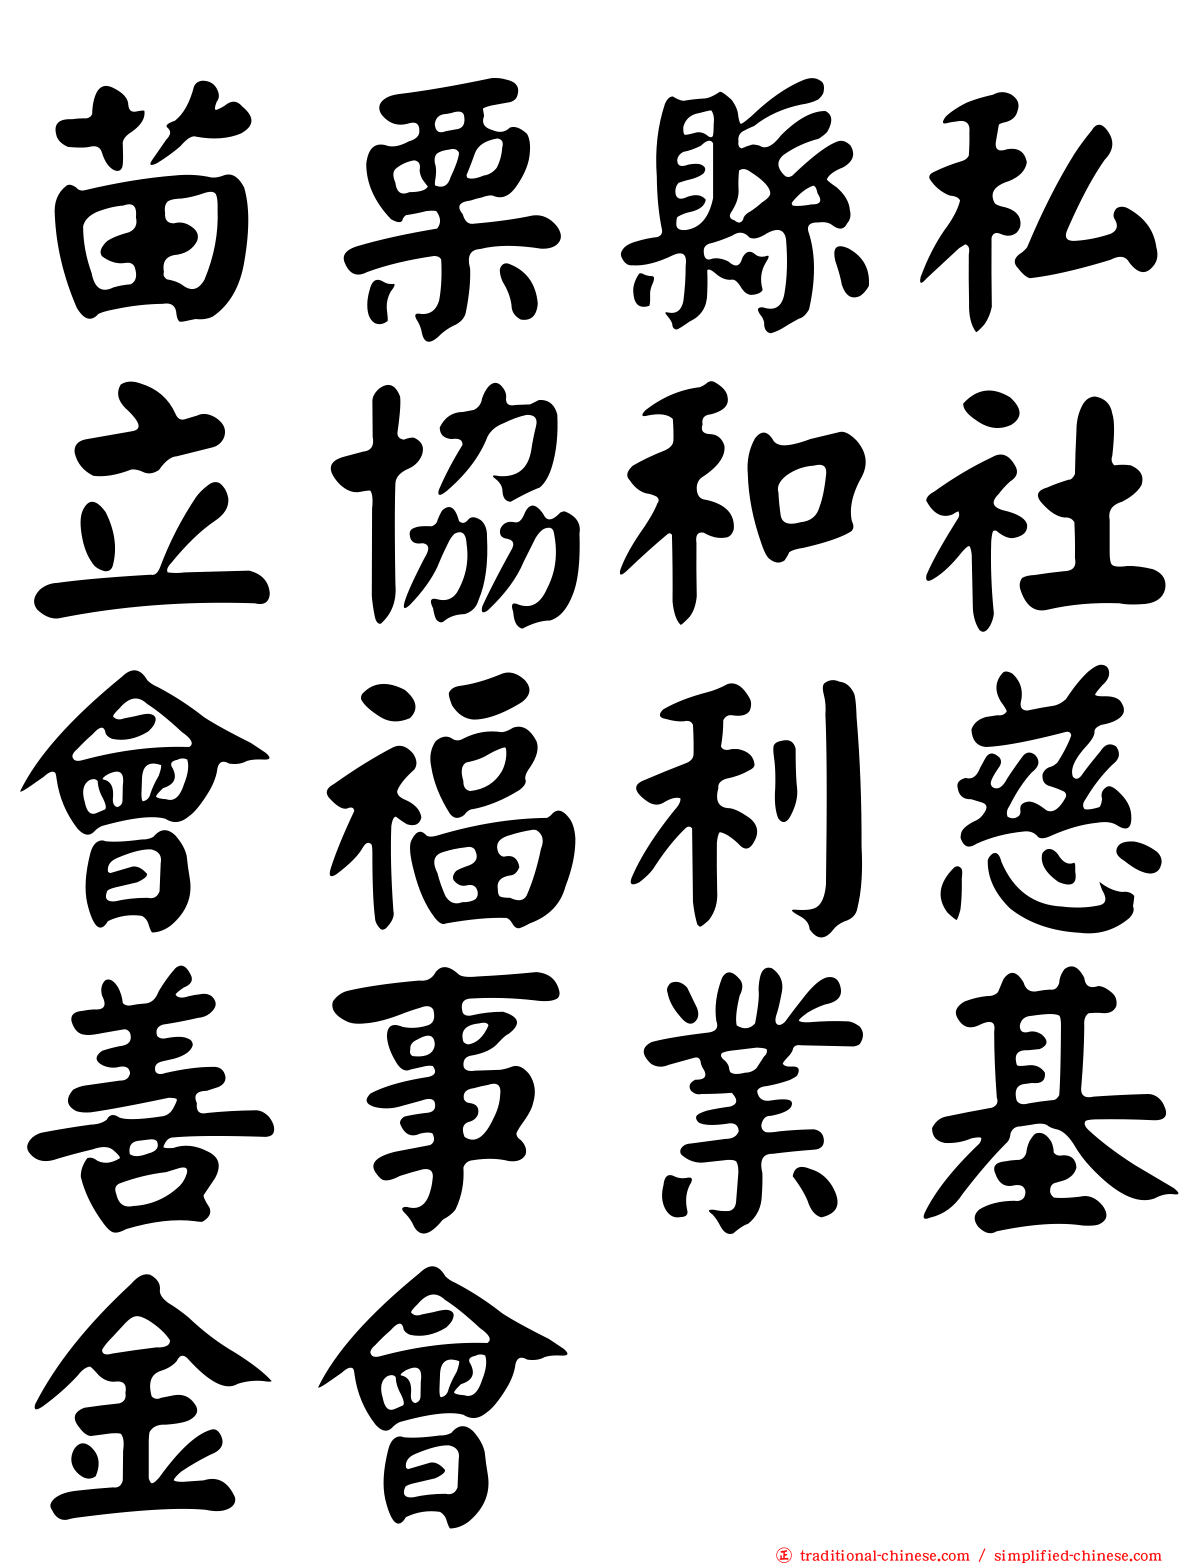 苗栗縣私
立協和社
會福利慈
善事業基
金會
正 traditional-chinese.com / simplified-chinese.com